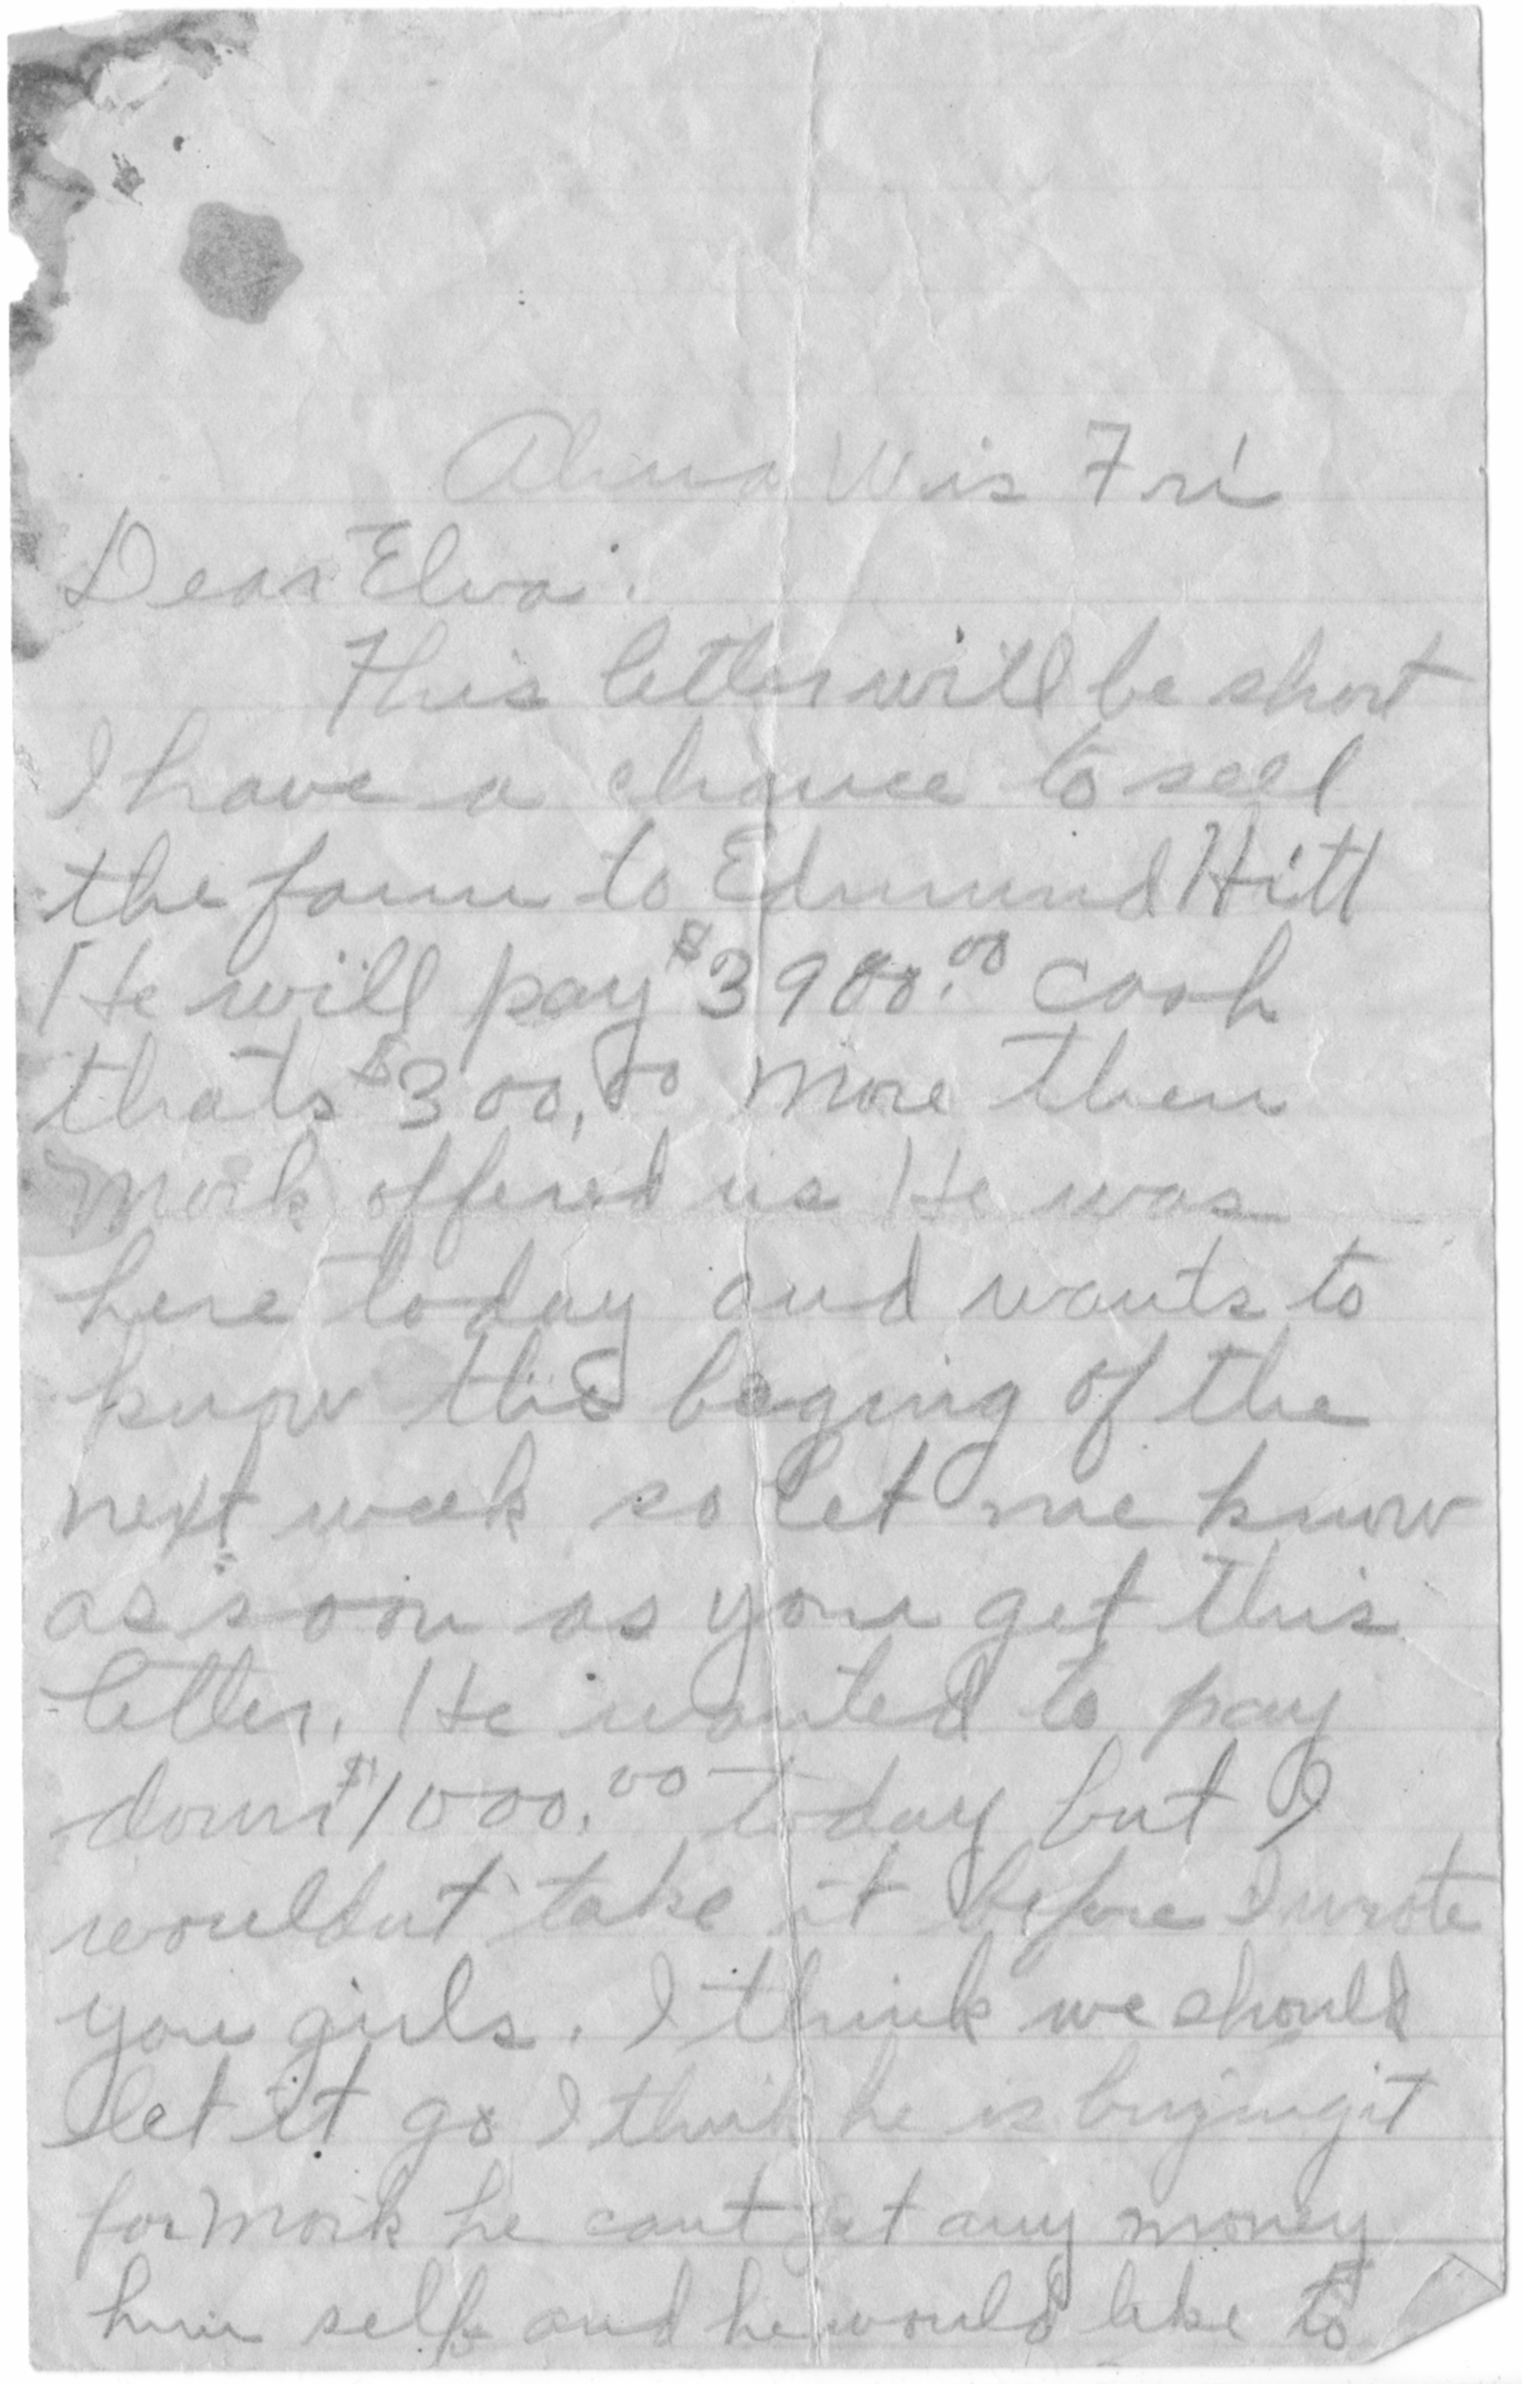 Alma Wis Fri
Dear Elva.
This letter will be short
I have a chance to sell
the farm to Edmund Hitt
He will pay $3900.00 cash
thats $300.00 more then
Mork offered us He was
here today and wants to
know the beging of the
next week so let me know
as soon as you get this
letter. He wanted to pay
down $1000.00 today but I
wouldnt take it before I wrote
you girls. I think we should
let it go I think he is buying it
for Mork he cant get any money
him self and he would like to